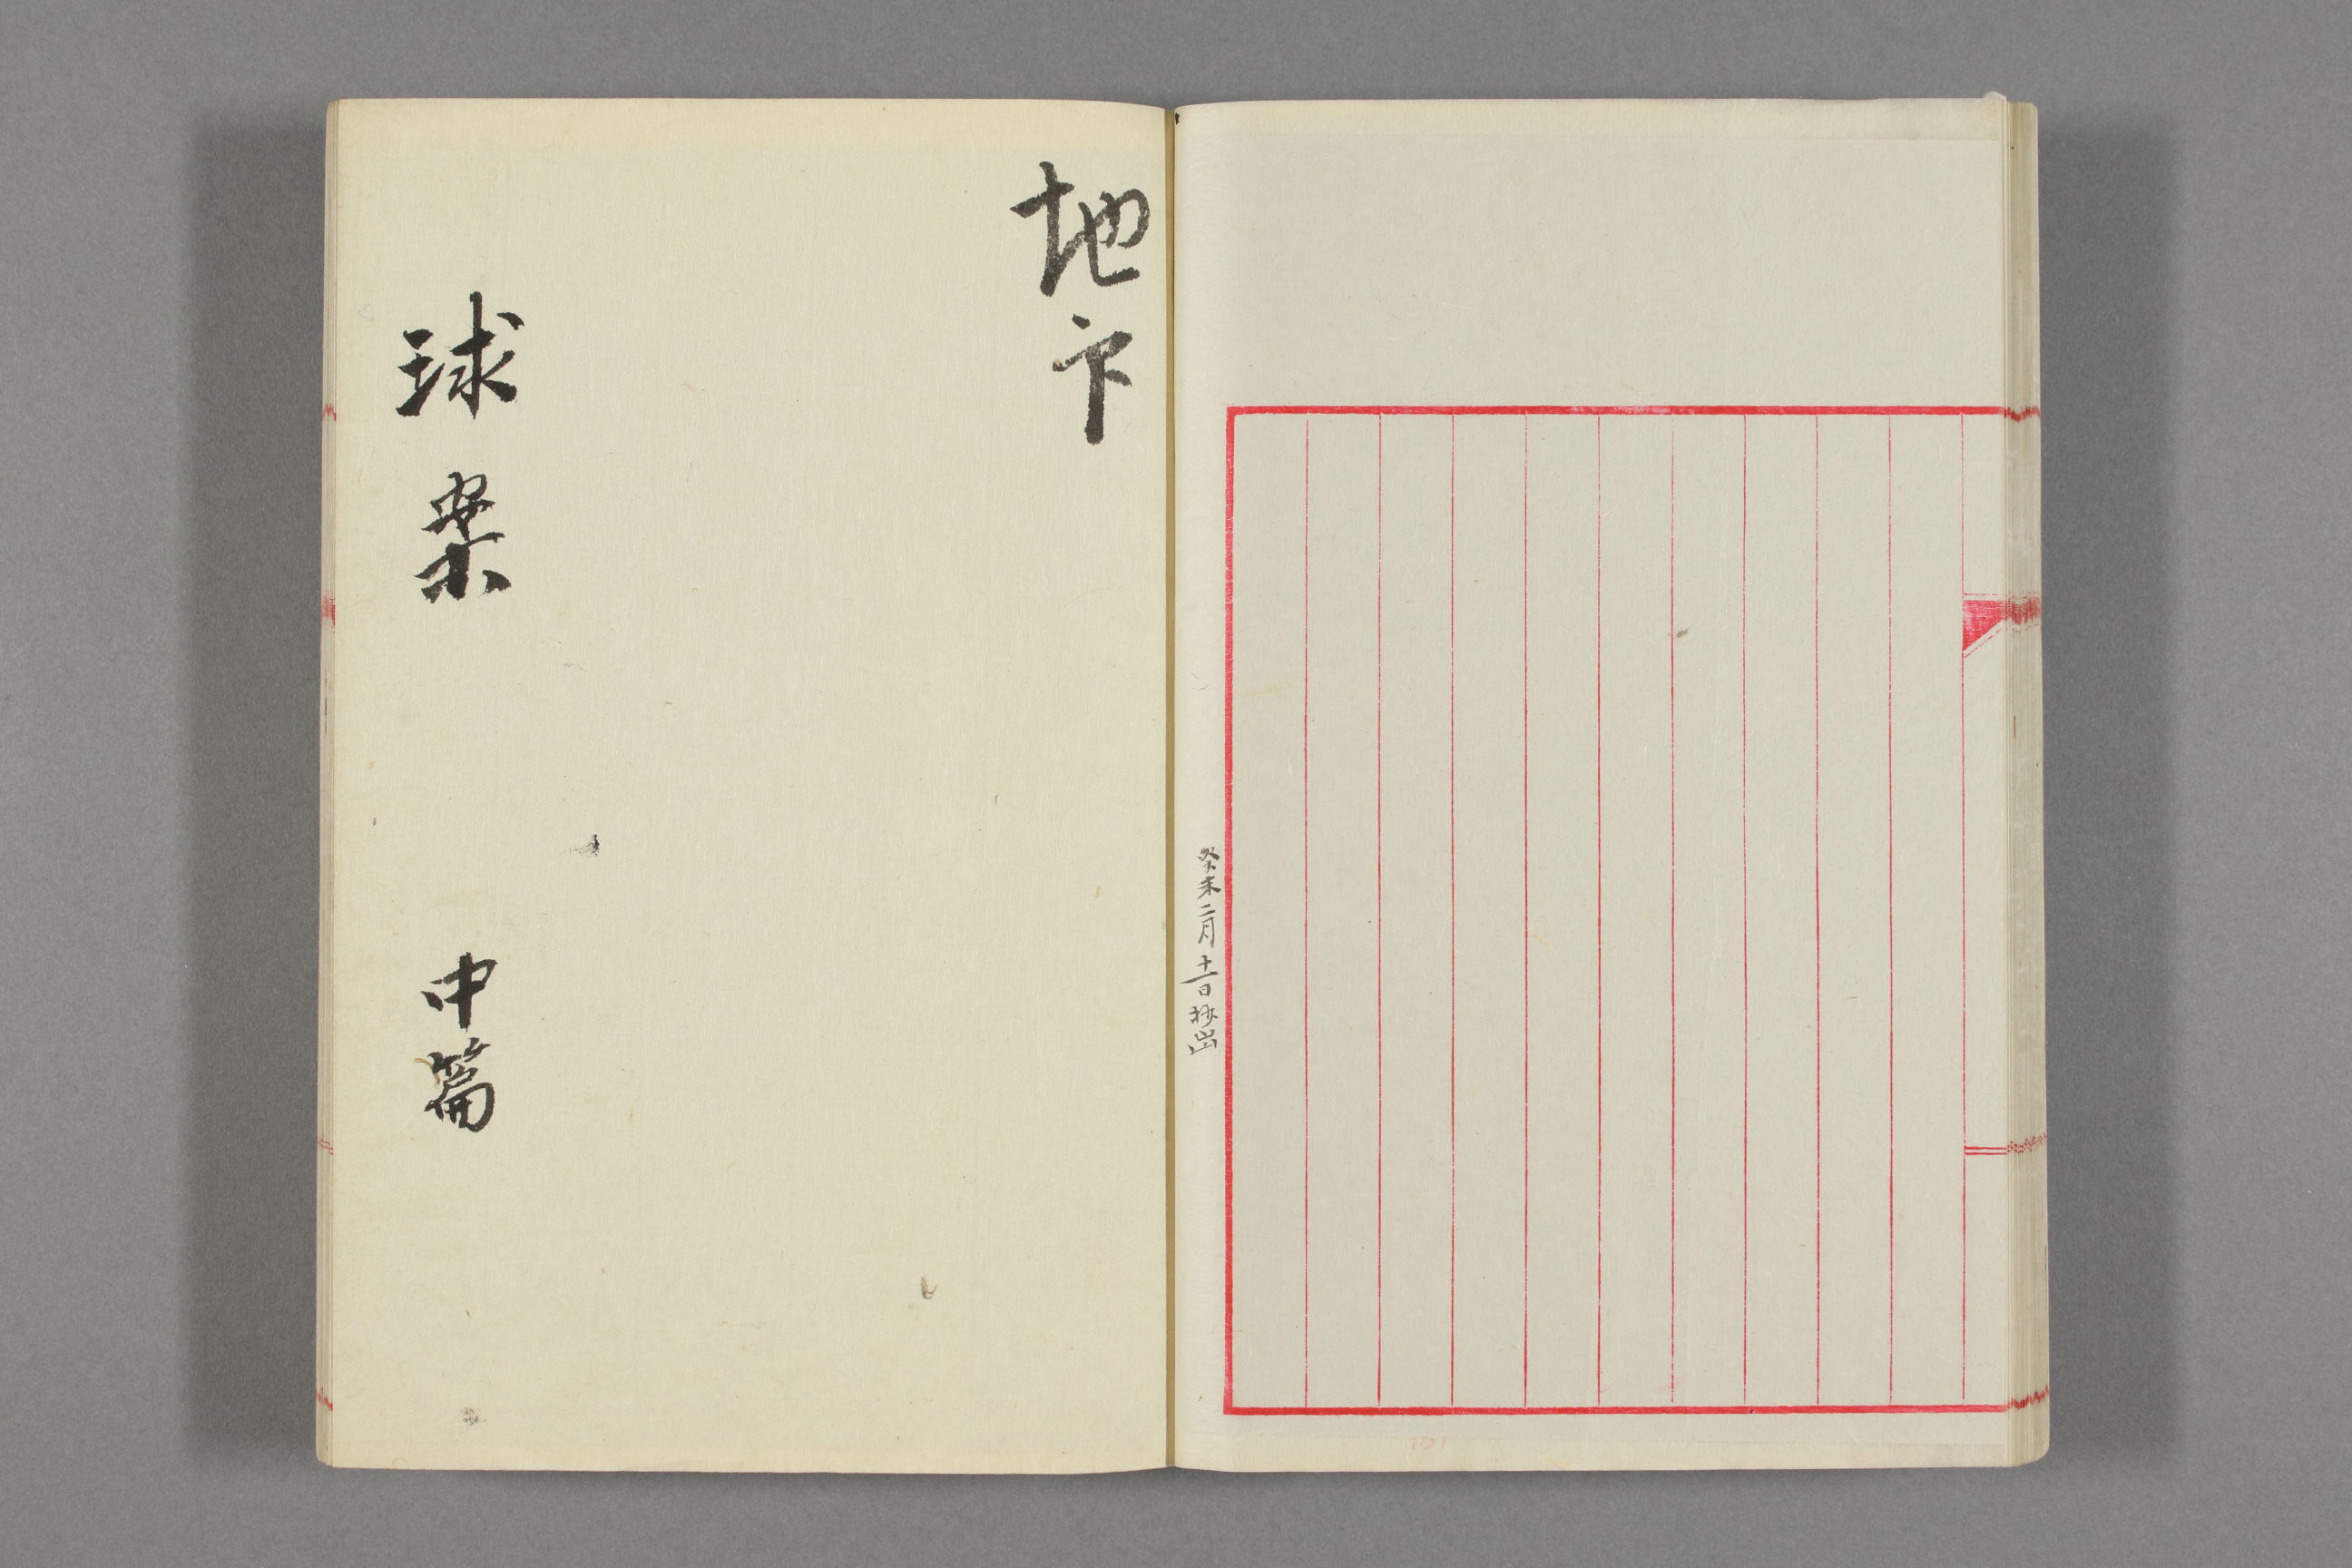 癸未二月十一日抄出
地下
球案 中篇